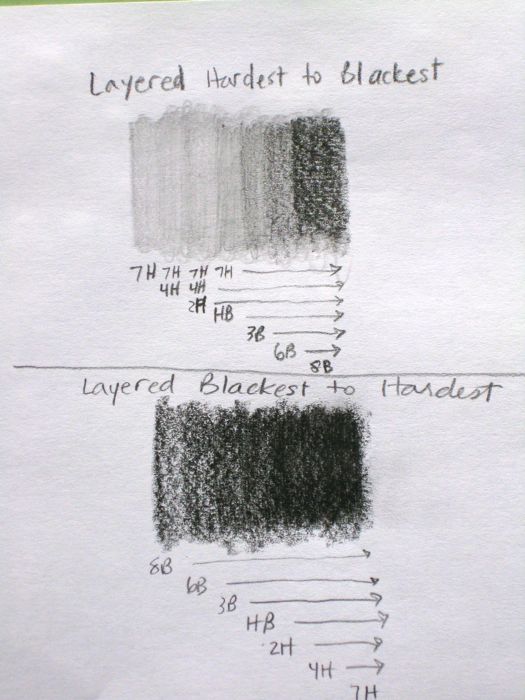 Layered Hardest to Blackest
7H 7H 7H 7H
4H 4H
2H
HB
3B
6B
8B
Layered Blackest to Hardest
8B
6B
3B
HB
2H
4H
7H